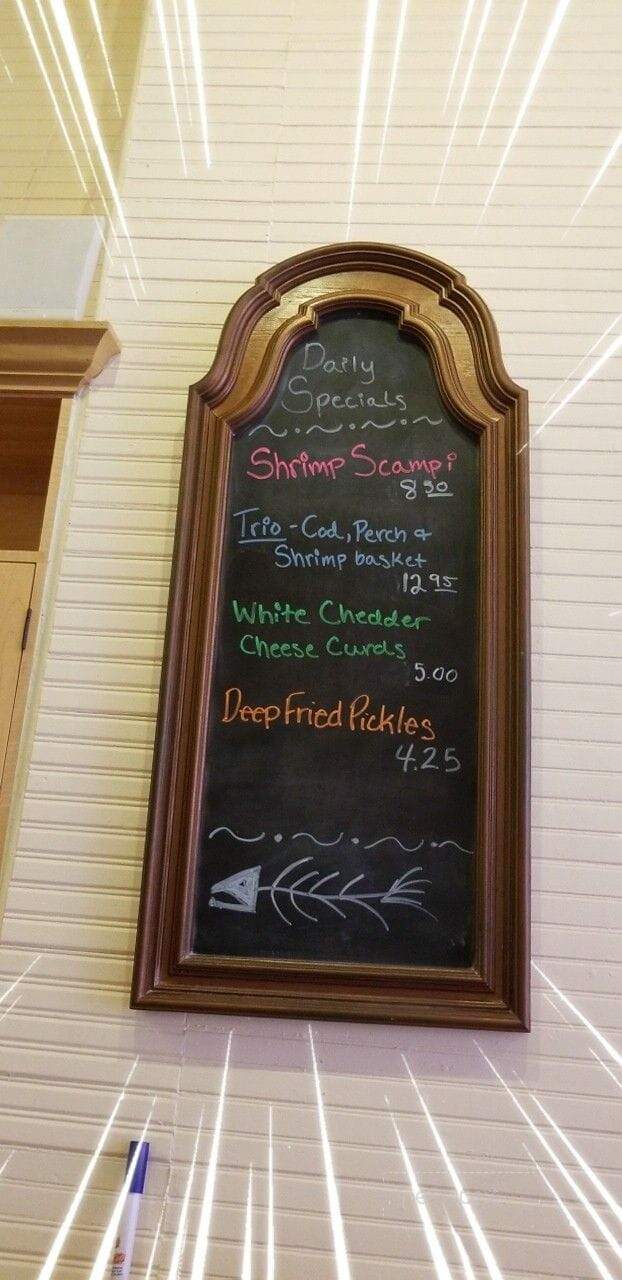 Daily
Specials
Shrimp Scampi
8 50
Trio - Cod, Perch &
Shrimp basket
12 95
White Chedder
Cheese Curds
5.00
Deep Fried Pickles
4.25